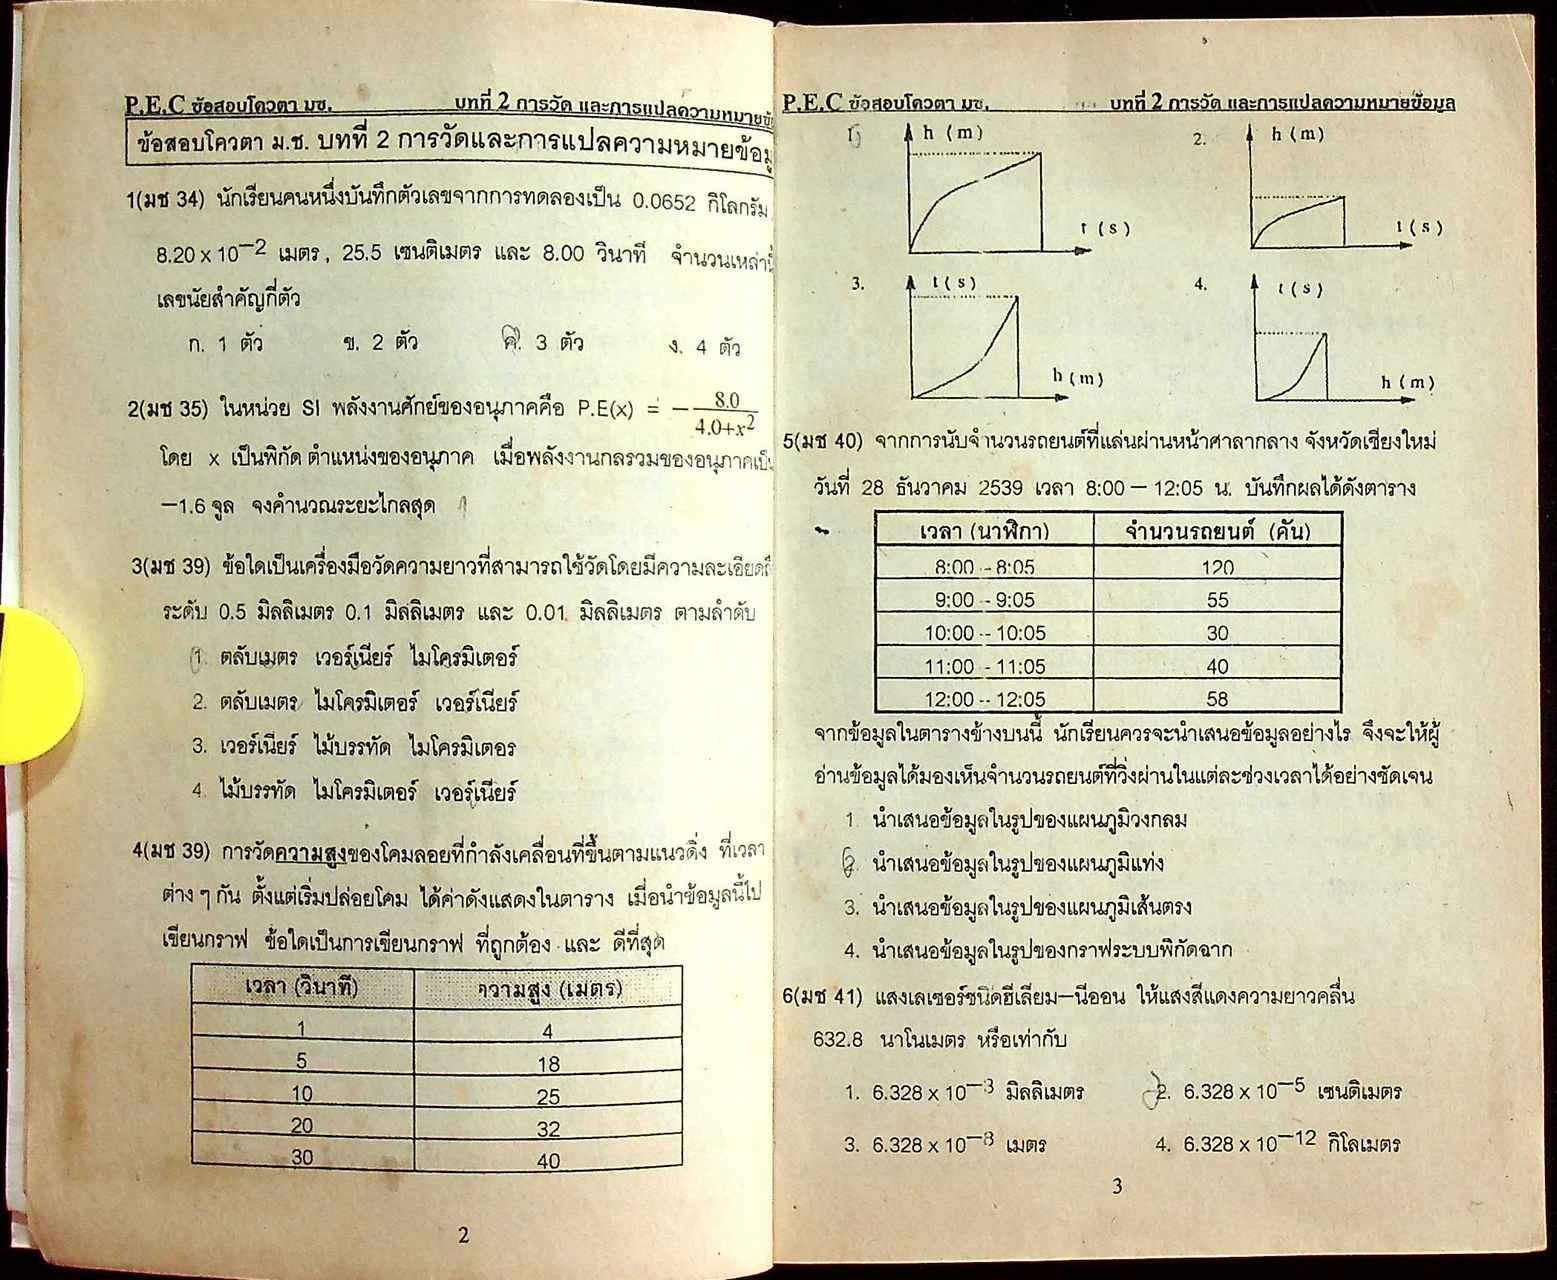 P.E.C ข้อสอบโควตา มช. บทที่ 2 การวัด และการแปลความหมายข้
ข้อสอบโควตา ม.ช. บทที่ 2 การวัดและการแปลความหมายข้อมู
1(มช 34) นักเรียนคนหนึ่งบันทึกตัวเลขจากการทดลองเป็น 0.0652 กิโลกรัม
8.20 x 10⁻² เมตร, 25.5 เซนติเมตร และ 8.00 วินาที จำนวนเหล่านี้
เลขนัยสำคัญกี่ตัว
ก. 1 ตัว ข. 2 ตัว ค. 3 ตัว ง. 4 ตัว
2(มช 35) ในหน่วย SI พลังงานศักย์ของอนุภาคคือ P.E(x) = −8.0/(4.0+x²)
โดย x เป็นพิกัด ตำแหน่งของอนุภาค เมื่อพลังงานกลรวมของอนุภาคเป็น
−1.6 จูล จงคำนวณระยะไกลสุด
3(มช 39) ข้อใดเป็นเครื่องมือวัดความยาวที่สามารถใช้วัดโดยมีความละเอียดถึ
ระดับ 0.5 มิลลิเมตร 0.1 มิลลิเมตร และ 0.01 มิลลิเมตร ตามลำดับ
1. ตลับเมตร เวอร์เนียร์ ไมโครมิเตอร์
2. ตลับเมตร ไมโครมิเตอร์ เวอร์เนียร์
3. เวอร์เนียร์ ไม้บรรทัด ไมโครมิเตอร
4. ไม้บรรทัด ไมโครมิเตอร์ เวอร์เนียร์
4(มช 39) การวัดความสูงของโคมลอยที่กำลังเคลื่อนที่ขึ้นตามแนวดิ่ง ที่เวลา
ต่าง ๆ กัน ตั้งแต่เริ่มปล่อยโคม ได้ค่าดังแสดงในตาราง เมื่อนำข้อมูลนี้ไป
เขียนกราฟ ข้อใดเป็นการเขียนกราฟ ที่ถูกต้อง และ ดีที่สุด
เวลา (วินาที) ความสูง (เมตร)
1 4
5 18
10 25
20 32
30 40
2
P.E.C ข้อสอบโควตา มช. บทที่ 2 การวัด และการแปลความหมายข้อมูล
1. h (m) t (s)
2. h (m) t (s)
3. t (s) h (m)
4. t (s) h (m)
5(มช 40) จากการนับจำนวนรถยนต์ที่แล่นผ่านหน้าศาลากลาง จังหวัดเชียงใหม่
วันที่ 28 ธันวาคม 2539 เวลา 8:00 − 12:05 น. บันทึกผลได้ดังตาราง
เวลา (นาฬิกา) จำนวนรถยนต์ (คัน)
8:00 - 8:05 120
9:00 - 9:05 55
10:00 - 10:05 30
11:00 - 11:05 40
12:00 - 12:05 58
จากข้อมูลในตารางข้างบนนี้ นักเรียนควรจะนำเสนอข้อมูลอย่างไร จึงจะให้ผู้
อ่านข้อมูลได้มองเห็นจำนวนรถยนต์ที่วิ่งผ่านในแต่ละช่วงเวลาได้อย่างชัดเจน
1. นำเสนอข้อมูลในรูปของแผนภูมิวงกลม
2. นำเสนอข้อมูลในรูปของแผนภูมิแท่ง
3. นำเสนอข้อมูลในรูปของแผนภูมิเส้นตรง
4. นำเสนอข้อมูลในรูปของกราฟระบบพิกัดฉาก
6(มช 41) แสงเลเซอร์ชนิดฮีเลียม−นีออน ให้แสงสีแดงความยาวคลื่น
632.8 นาโนเมตร หรือเท่ากับ
1. 6.328 x 10⁻³ มิลลิเมตร 2. 6.328 x 10⁻⁵ เซนติเมตร
3. 6.328 x 10⁻⁸ เมตร 4. 6.328 x 10⁻¹² กิโลเมตร
3